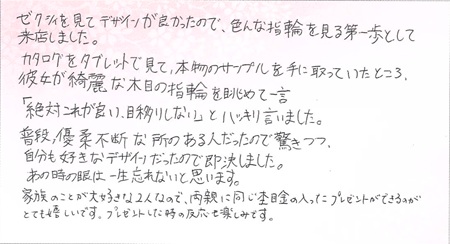 ゼクシィを見てデザインが良かったので、色んな指輪を見る第一歩として
来店しました。
カタログをタブレットで見て、本物のサンプルを手に取っていたところ、
彼女が綺麗な木目の指輪を眺めて一言
「絶対これが良い、目移りしない」とハッキリ言いました。
普段、優柔不断な所のある人だったので驚きつつ、
自分も好きなデザインだったので即決しました。
あの時の眼は一生忘れないと思います。
家族のことが大好きな2人なので、両親に同じ杢目金の入ったプレゼントができるのが
とても嬉しいです。プレゼントした時の反応も楽しみです。